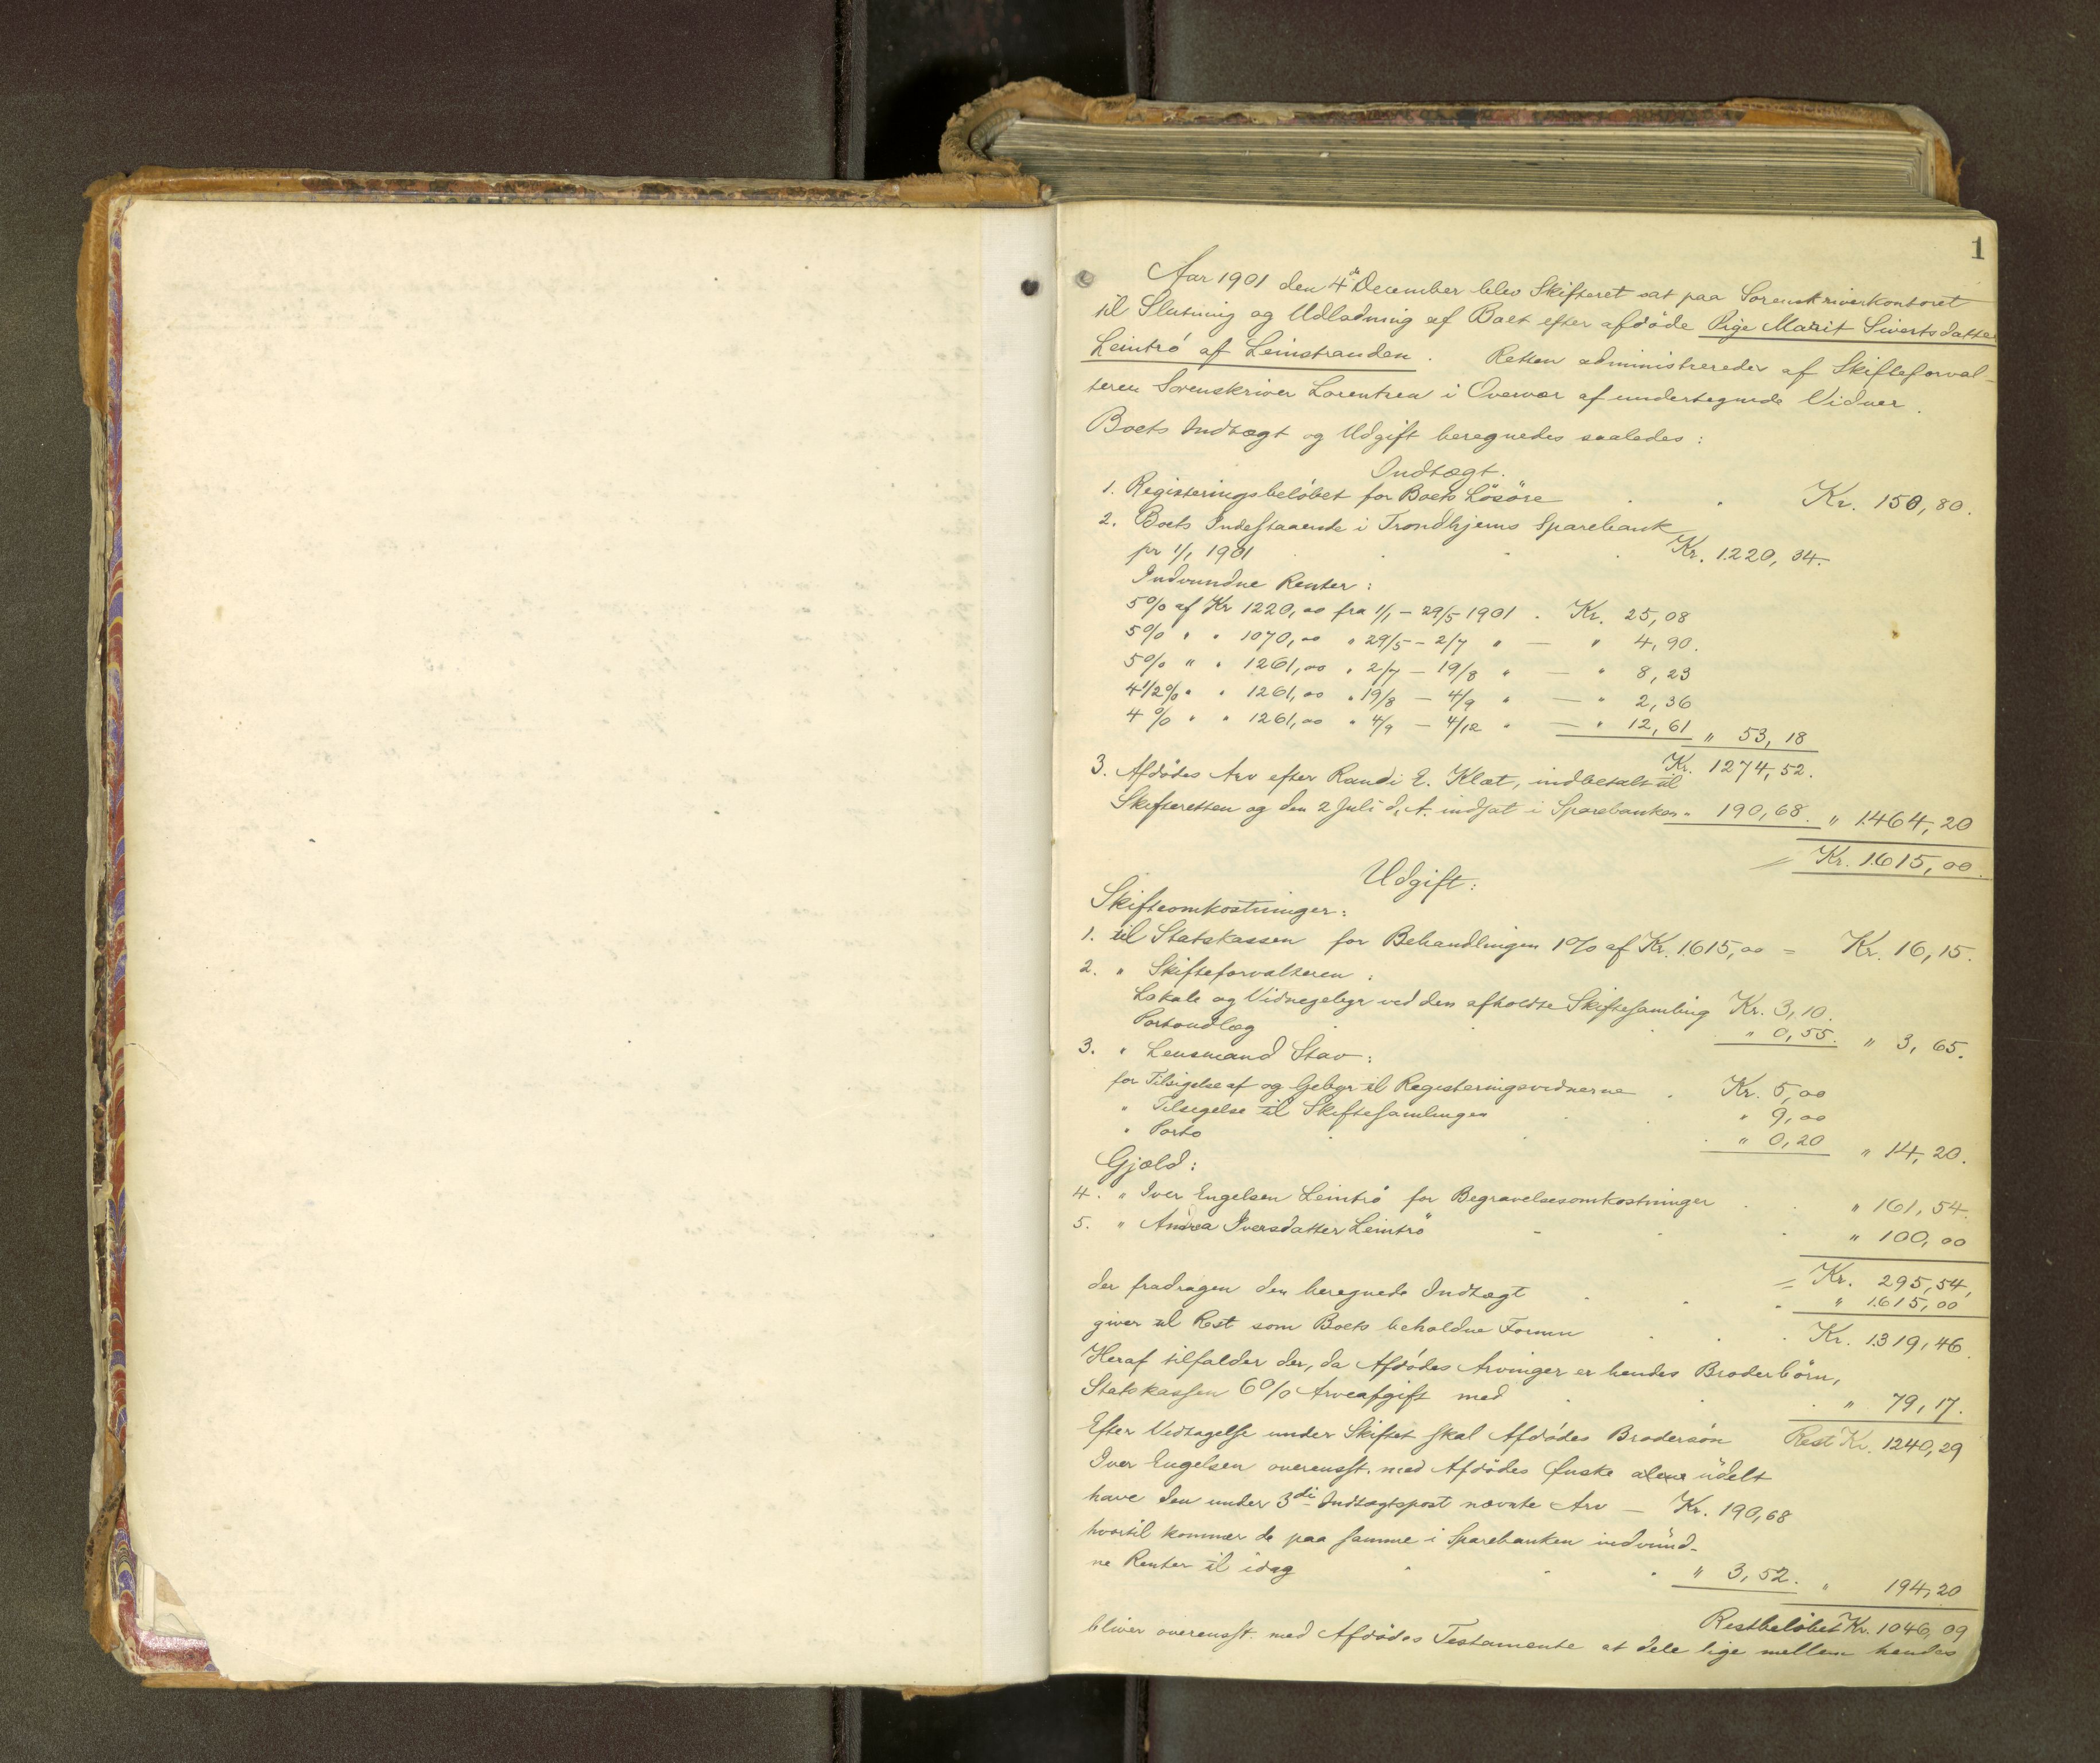 1
Aar 1901 den 4de December blev Skifteret sat paa Sorenskriverkontoret
til Slutning og Udlodning af Boet efter afdøde Pige Marit Sivertsdatter
Leintrø af Leinstranden. Retten administreredes af Skifteforval-
teren Sorenskriver Lorentzen i Overvær af undertegnede Vidner.
Boets Indtægt og Udgift beregnedes saaledes:
Indtægt.
1. Registeringsbeløbet for Boets Løsøre . . Kr. 150,80.
2. Boets Indestaaende i Trondhjems Sparebank
pr 1/1 1901 . . . Kr. 1220,34.
Indvundne Renter:
5% af Kr 1220,00 fra 1/1 - 29/5 1901 . Kr. 25,08
5% " " 1070,00 " 29/5 - 2/7 " — " 4,90.
5% " " 1261,00 " 2/7 - 19/8 " — " 8,23
4 1/2% " " 1261,00 " 19/8 - 4/9 " — " 2,36
4 % " " 1261,00 " 4/9 - 4/12 " — " 12,61 " 53,18
Kr. 1274,52.
3. Afdødes Arv efter Randi E. Klæt, indbetalt til
Skifteretten og den 2 Juli d. A. indsat i Sparebanken " 190,68. " 1464,20
= Kr. 1615,00.
Udgift:
Skifteomkostninger:
1. til Statskassen for Behandlingen 1% af Kr. 1615,00 = Kr. 16,15.
2. " Skifteforvalteren:
Lokale og Vidnegebyr ved den afholdte Skiftesamling Kr. 3,10.
Portoudlæg . . . " 0,55. " 3,65.
3. " Lensmand Stav:
for Tilsigelse af og Gebyr til Registeringsvidnerne . Kr. 5,00
" Tilsigelse til Skiftesamlingen . . " 9,00
" Porto . . . " 0,20 " 14,20.
Gjæld:
4. " Iver Engelsen Leintrø for Begravelsesomkostninger . . " 161,54.
5. " Andrea Iversdatter Leintrø - . . " 100,00
= Kr. 295,54,
der fradragen den beregnede Indtægt . . . " 1615,00
giver til Rest som Boets beholdne Formue . . . Kr. 1319,46.
Heraf tilfalder der, da Afdødes Arvinger er hendes Broderbørn,
Statskassen 6% Arveafgift med . . . " 79,17.
Efter Vedtagelse under Skiftet skal Afdødes Brodersøn Rest Kr. 1240,29
Iver Engelsen overensst. med Afdødes Ønske alene udelt
have den under 3di Indtægtspost nævnte Arv — Kr. 190,68
hvortil kommer de paa samme i Sparebanken indvund-
ne Renter til idag . . . " 3,52. " 194,20
Restbeløbet Kr. 1046,09
bliver overensst. med Afdødes Testamente at dele lige mellem hendes